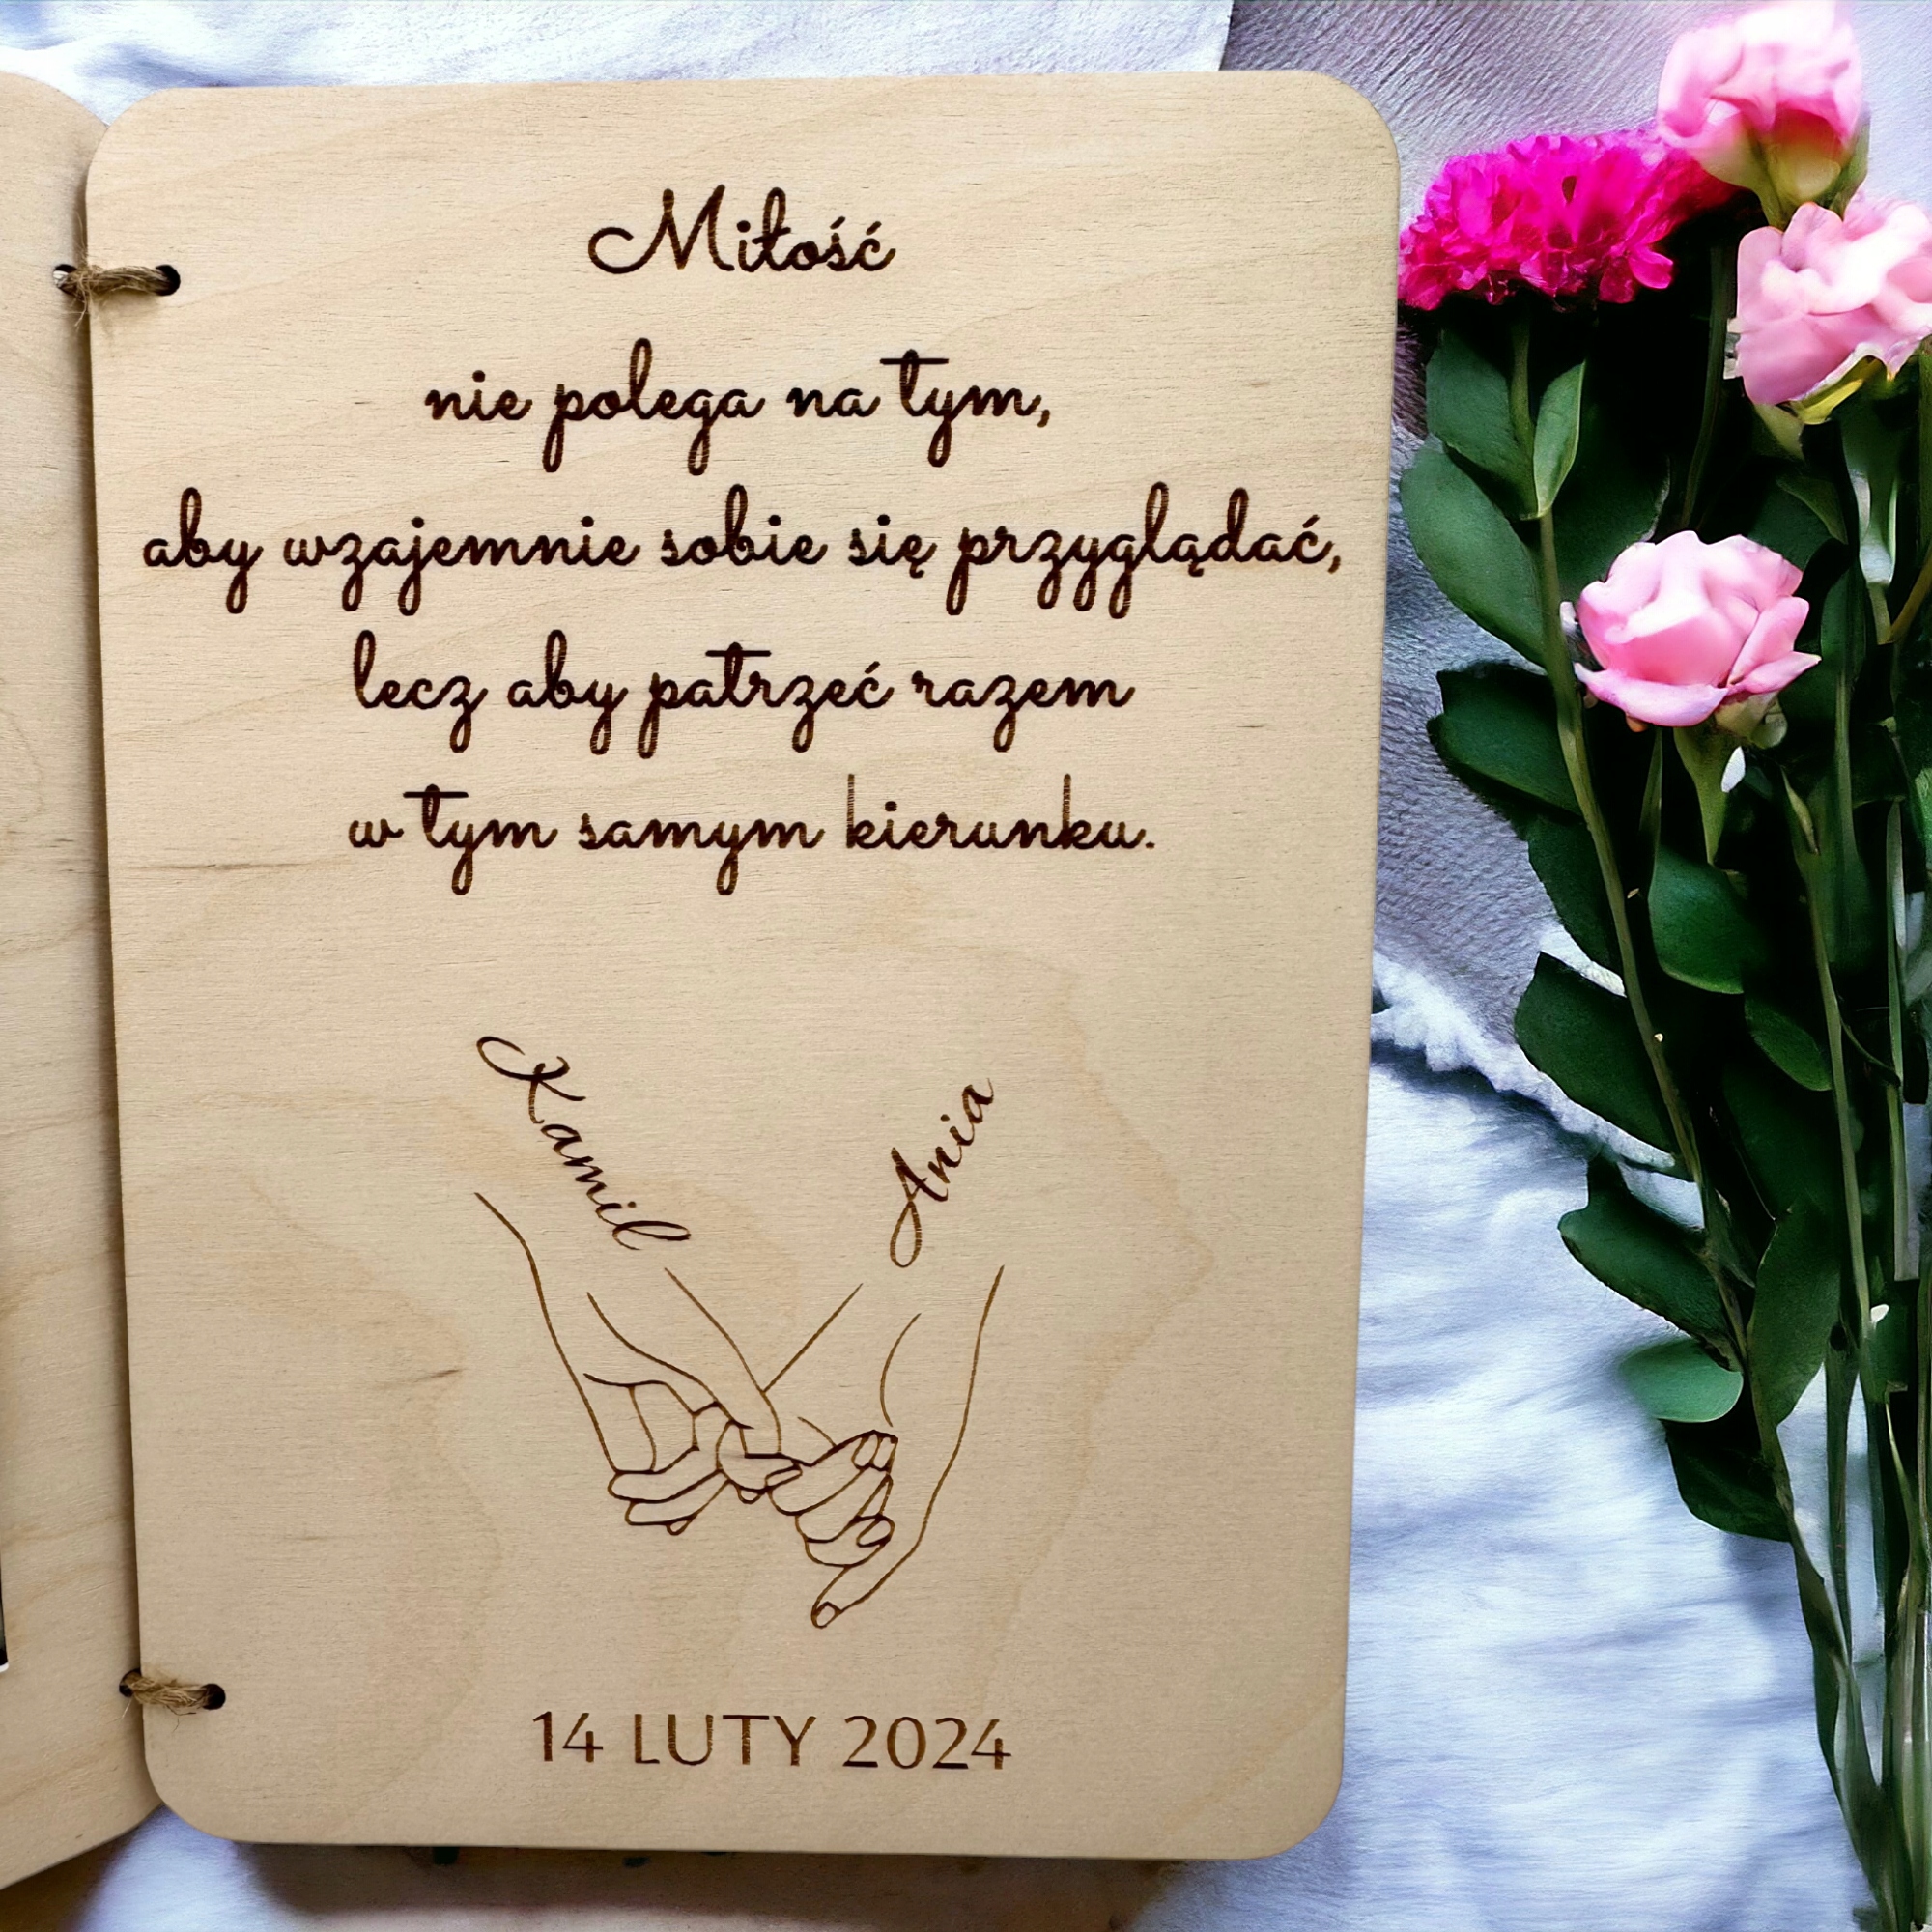 Miłość
nie polega na tym,
aby wzajemnie sobie się przyglądać,
lecz aby patrzeć razem
w tym samym kierunku.
Kamil
Ania
14 LUTY 2024